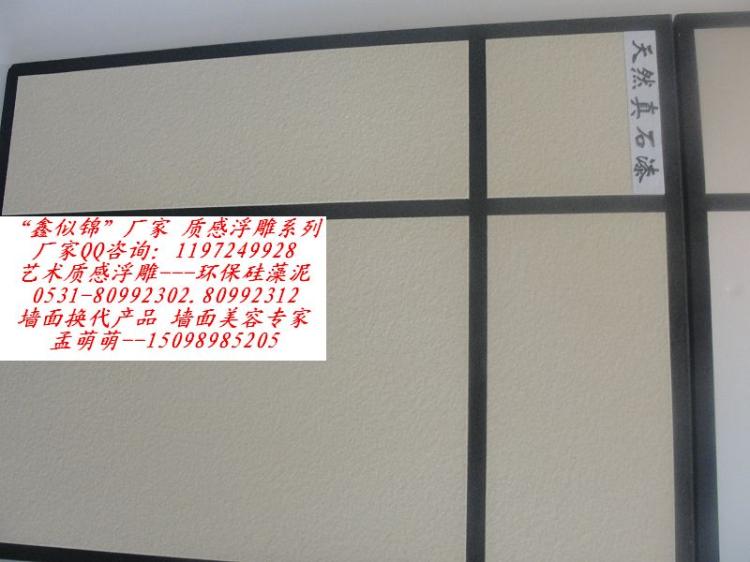 天然真石漆
“鑫似锦”厂家 质感浮雕系列
厂家QQ咨询：1197249928
艺术质感浮雕---环保硅藻泥
0531-80992302.80992312
墙面换代产品 墙面美容专家
孟萌萌--15098985205